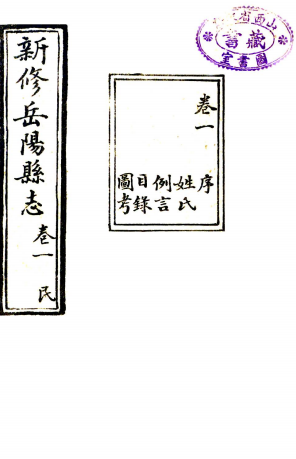 藏書
圖書室
卷一 序
姓氏
例言
目錄
圖考
新修岳陽縣志 卷一 民